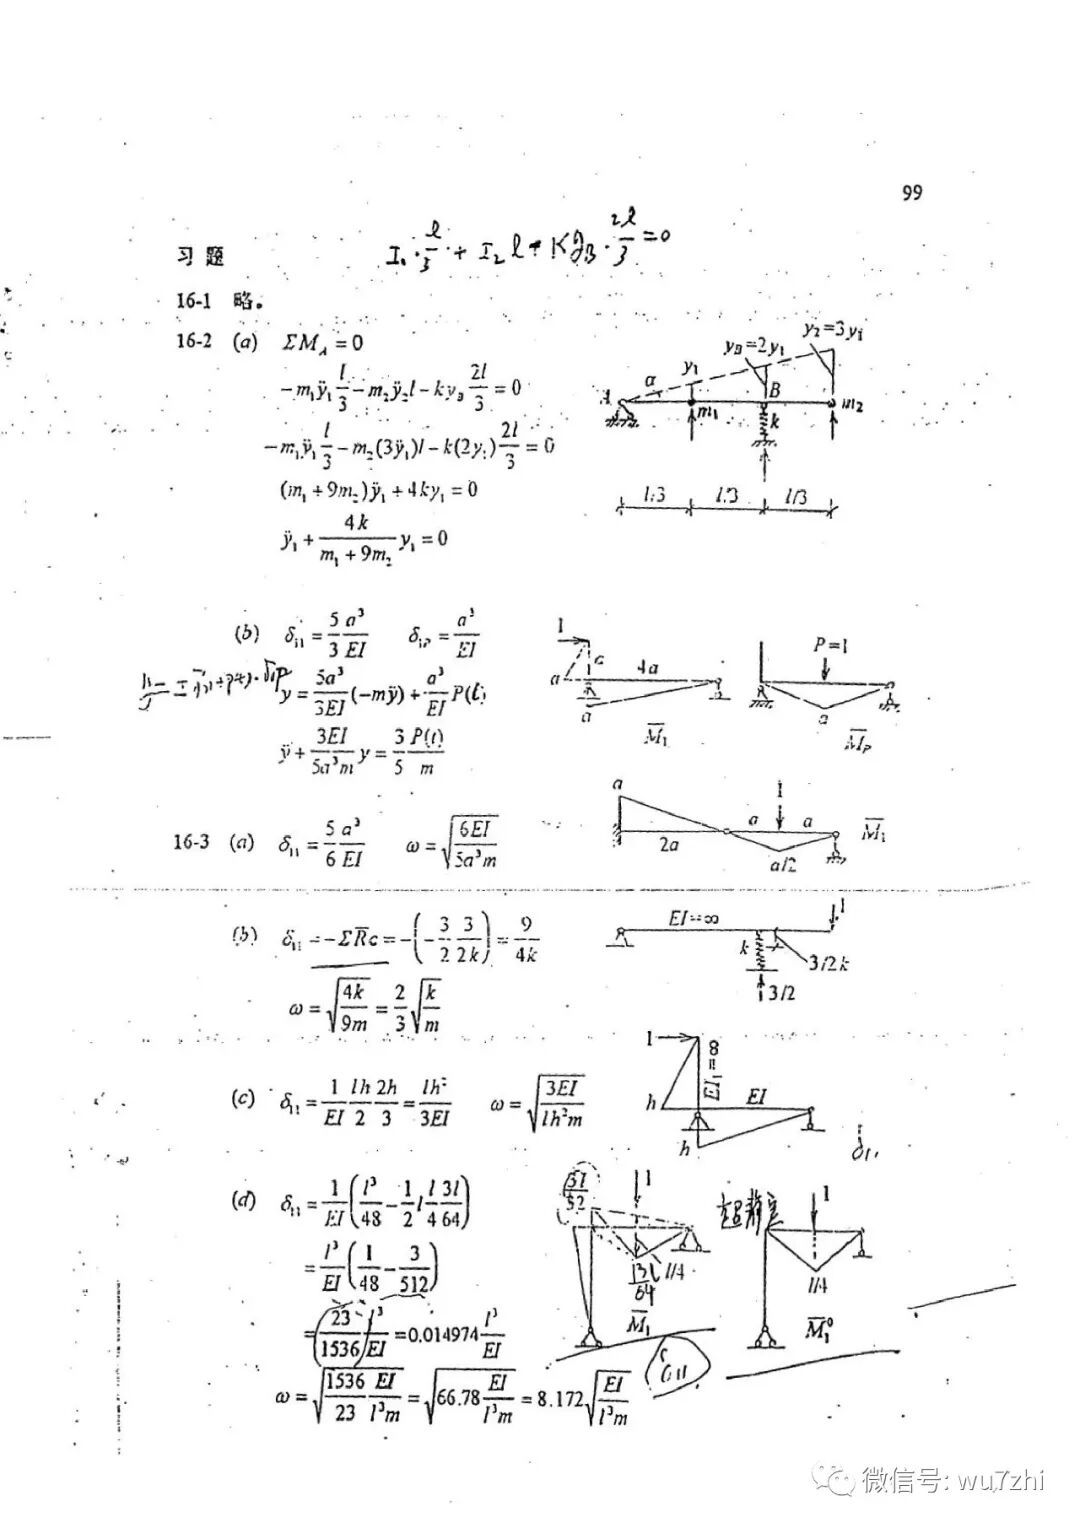 99
习题
I₁·l/3 + I₂l + Ky_B·2l/3 = 0
16-1 略。
16-2 (a) ΣM_A = 0
-m₁ÿ₁ l/3 - m₂ÿ₂l - ky_B 2l/3 = 0
-m₁ÿ₁ l/3 - m₂(3ÿ₁)l - k(2y₁) 2l/3 = 0
(m₁ + 9m₂)ÿ₁ + 4ky₁ = 0
ÿ₁ + 4k/(m₁ + 9m₂) y₁ = 0
y₁ y_B=2y₁ y₂=3y₁
A α m₁ B k m₂
l/3 l/3 l/3
(b) δ₁₁ = 5/3 a³/EI δ₁P = a³/EI
y = 5a³/3EI (-mÿ) + a³/EI P(t)
ÿ + 3EI/5a³m y = 3/5 P(t)/m
1 a a 4a a M̄₁
P=1 a M̄_P
16-3 (a) δ₁₁ = 5/6 a³/EI ω = √(6EI/5a³m)
a 2a 1 a a a/2 M̄₁
(b) δ₁₁ = -ΣR̄c = -(-3/2 3/2k) = 9/4k
ω = √(4k/9m) = 2/3 √(k/m)
EI=∞ 1 k 3/2k 3/2
(c) δ₁₁ = 1/EI lh/2 2h/3 = lh²/3EI ω = √(3EI/lh²m)
1 EI₁=∞ h EI h
δ₁₁
(d) δ₁₁ = 1/EI (l³/48 - 1/2 l l/4 3l/64)
= l³/EI (1/48 - 3/512)
= 23/1536 l³/EI = 0.014974 l³/EI
ω = √(1536/23 EI/l³m) = √(66.78 EI/l³m) = 8.172√(EI/l³m)
1 l/4 M̄₁
超静定 1 l/4 M̄₁⁰
微信号: wu7zhi